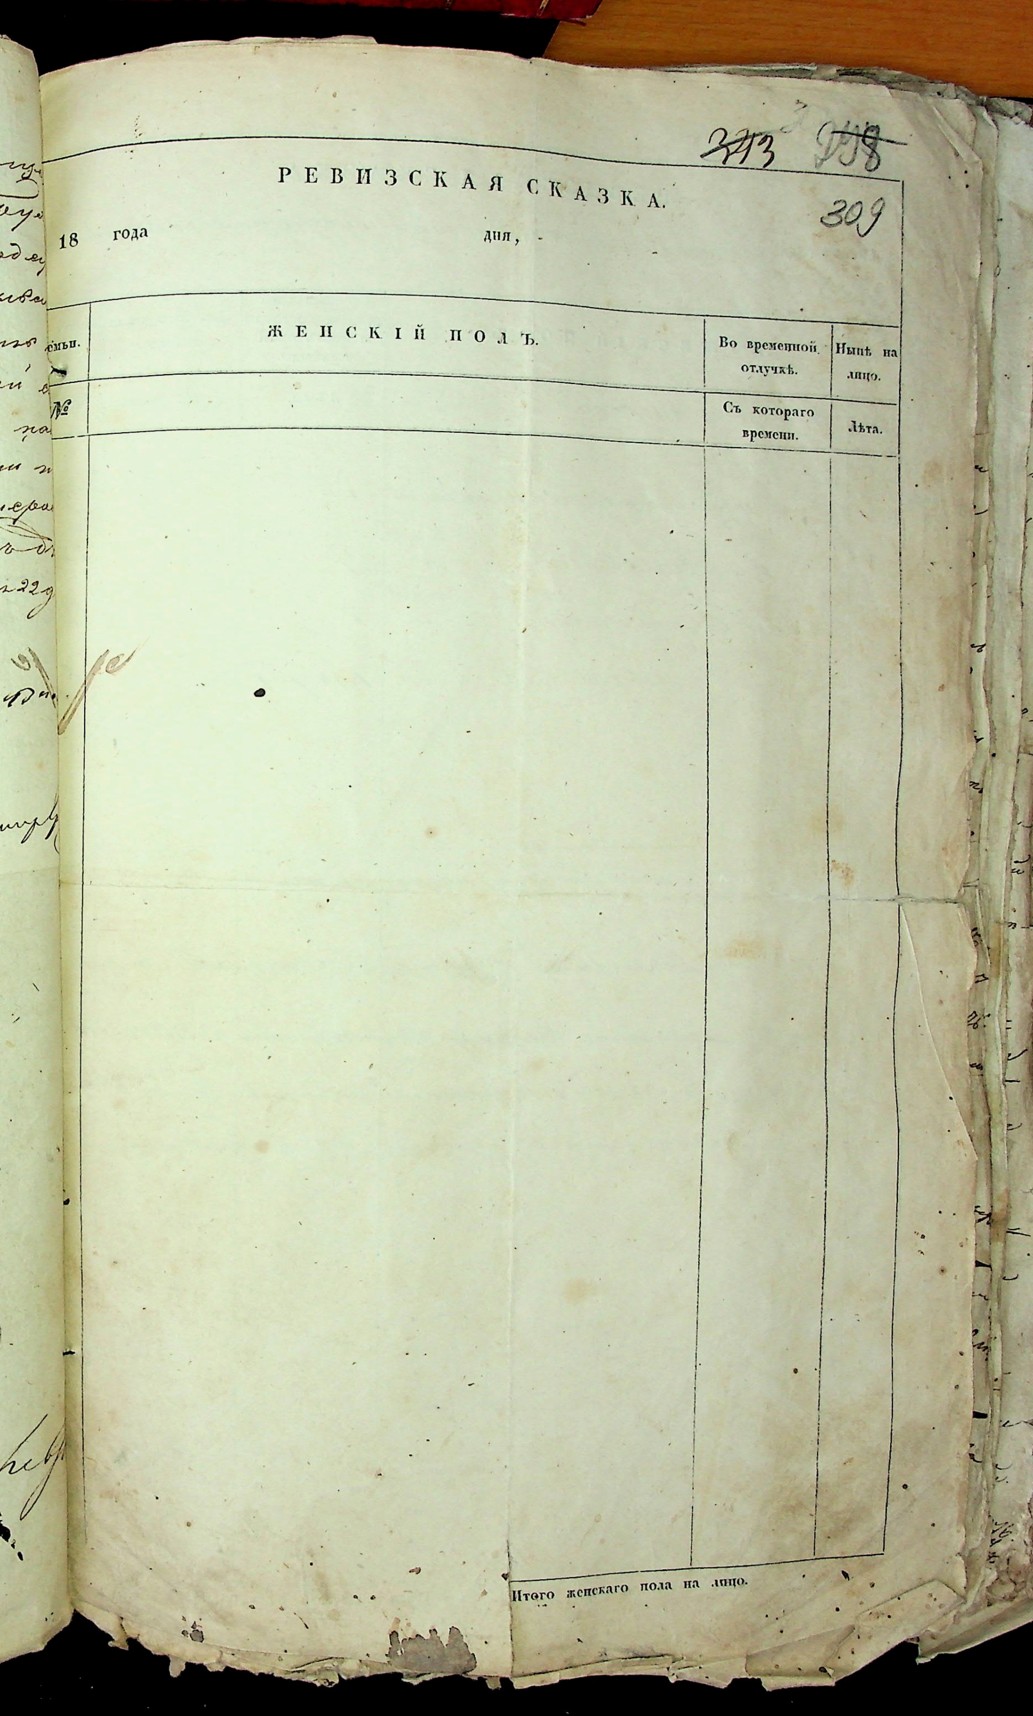 309
РЕВИЗСКАЯ СКАЗКА.
18 года дня,
ЖЕНСКІЙ ПОЛЪ.
Во временной отлучкѣ.
Нынѣ на лицо.
№
Съ котораго времени.
Лѣта.
Итого женскаго пола на лицо.